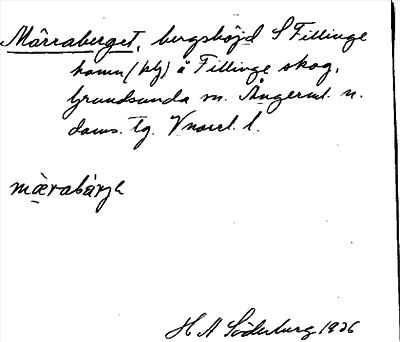 Märraberget, bergshöjd S Fillinge
hamn (by) å Fillinge skog,
Grundsunda sn. Ångerml. n.
doms. tg. Vnorrl. l.
mæ̀rabàrjə
H A Söderberg 1926